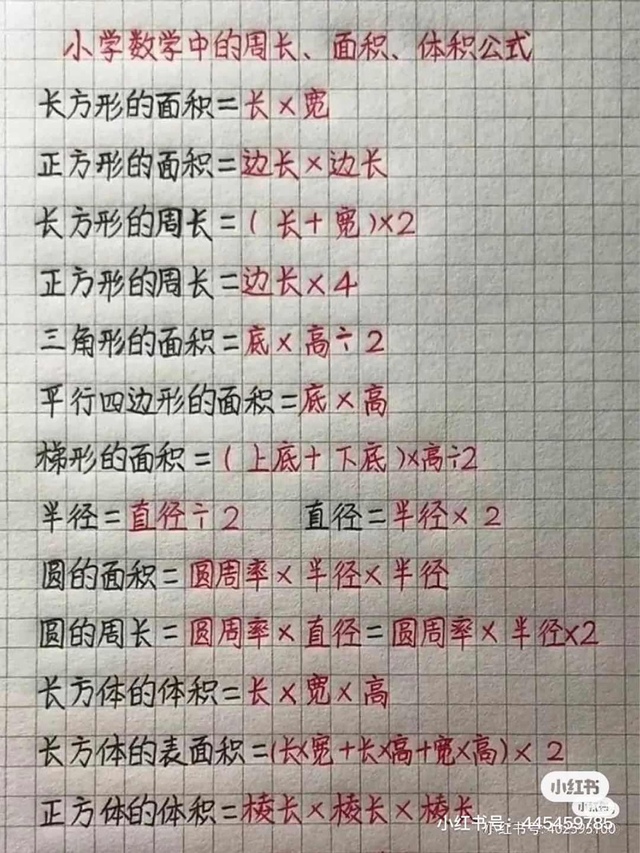 小学数学中的周长、面积、体积公式
长方形的面积=长×宽
正方形的面积=边长×边长
长方形的周长=(长+宽)×2
正方形的周长=边长×4
三角形的面积=底×高÷2
平行四边形的面积=底×高
梯形的面积=(上底+下底)×高÷2
半径=直径÷2 直径=半径×2
圆的面积=圆周率×半径×半径
圆的周长=圆周率×直径=圆周率×半径×2
长方体的体积=长×宽×高
长方体的表面积=(长×宽+长×高+宽×高)×2
正方体的体积=棱长×棱长×棱长
小红书
小红书
小红书号：445459785
小红书号: